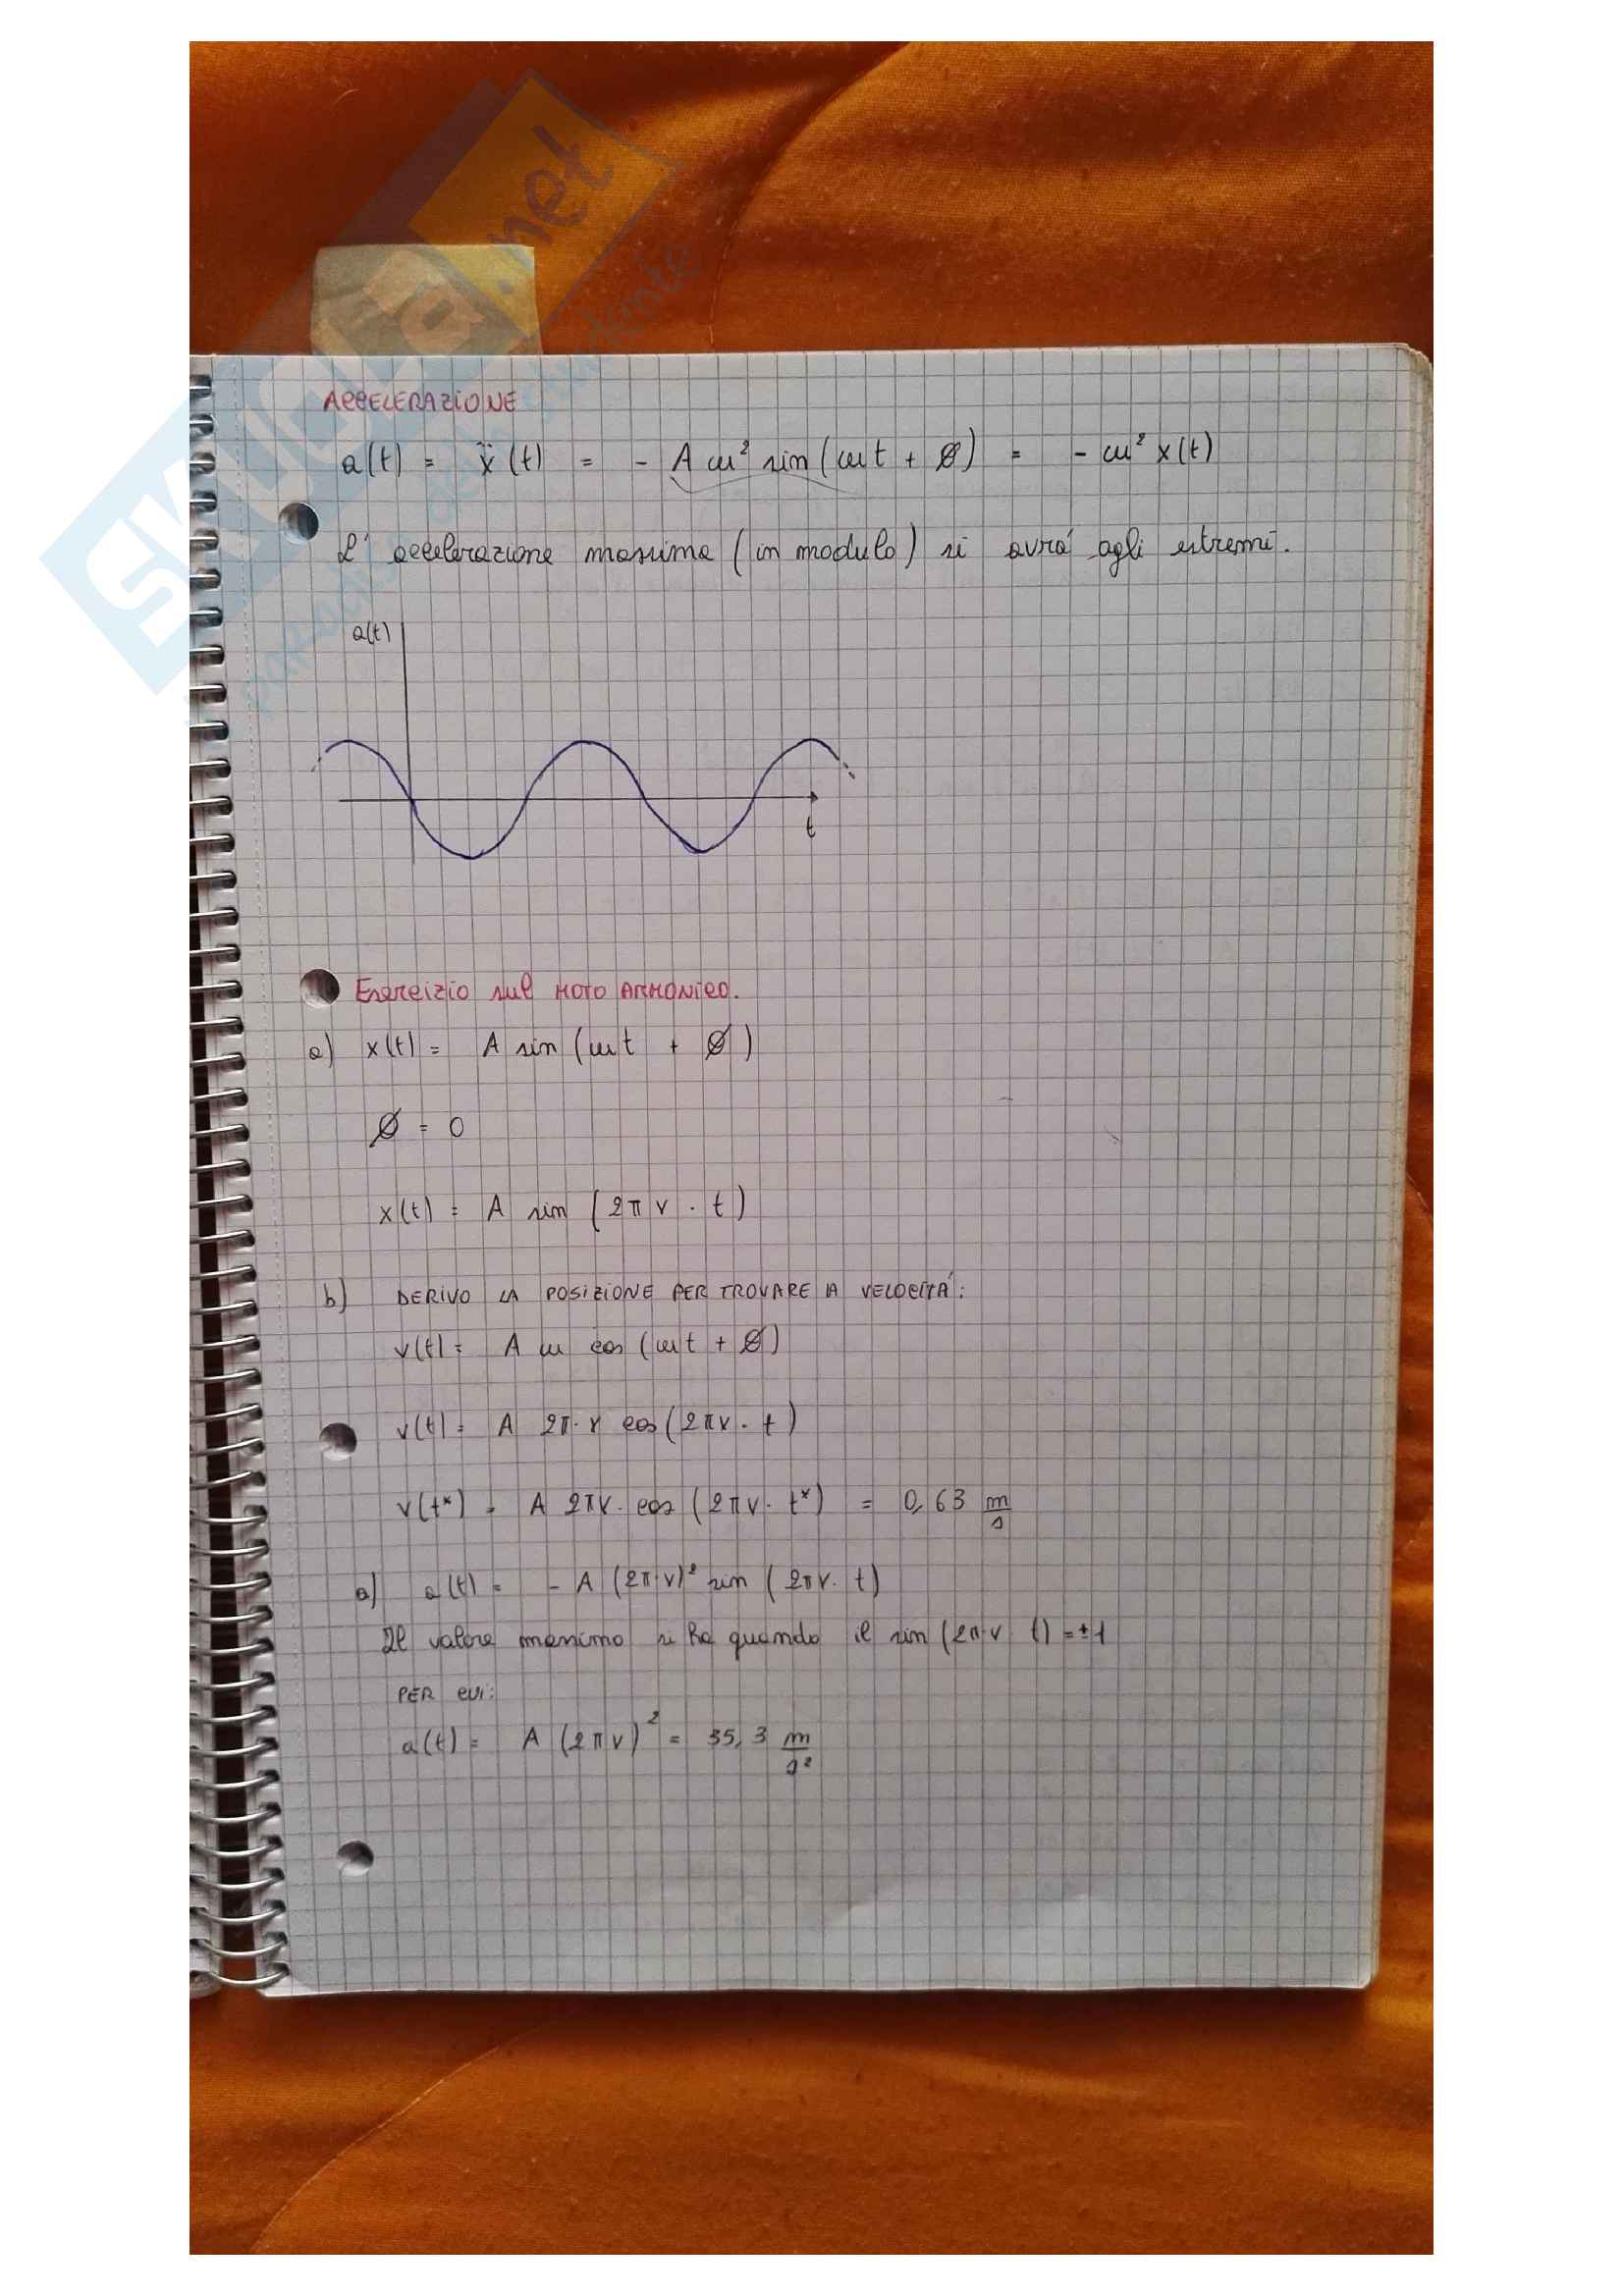 SKUOLA.net
paradiso dello studente
ACCELERAZIONE
a(t) = ẍ(t) = - A ω² sin(ωt + Ø) = - ω² x(t)
L' accelerazione massima (in modulo) si avrá agli estremi.
a(t)
t
Esercizio sul MOTO ARMONICO.
a) x(t) = A sin(ωt + Ø)
Ø = 0
x(t) = A sin (2π ν · t)
b) DERIVO LA POSIZIONE PER TROVARE LA VELOCITÁ:
v(t) = A ω cos (ωt + Ø)
v(t) = A 2π · ν cos(2πν · t)
v(t*) = A 2πν · cos (2πν · t*) = 0,63 m/s
c) a(t) = - A (2π·ν)² sin (2πν · t)
Il valore massimo si ha quando il sin (2π·ν t) = ±1
PER cui:
a(t) = A (2πν)² = 35,3 m/s²